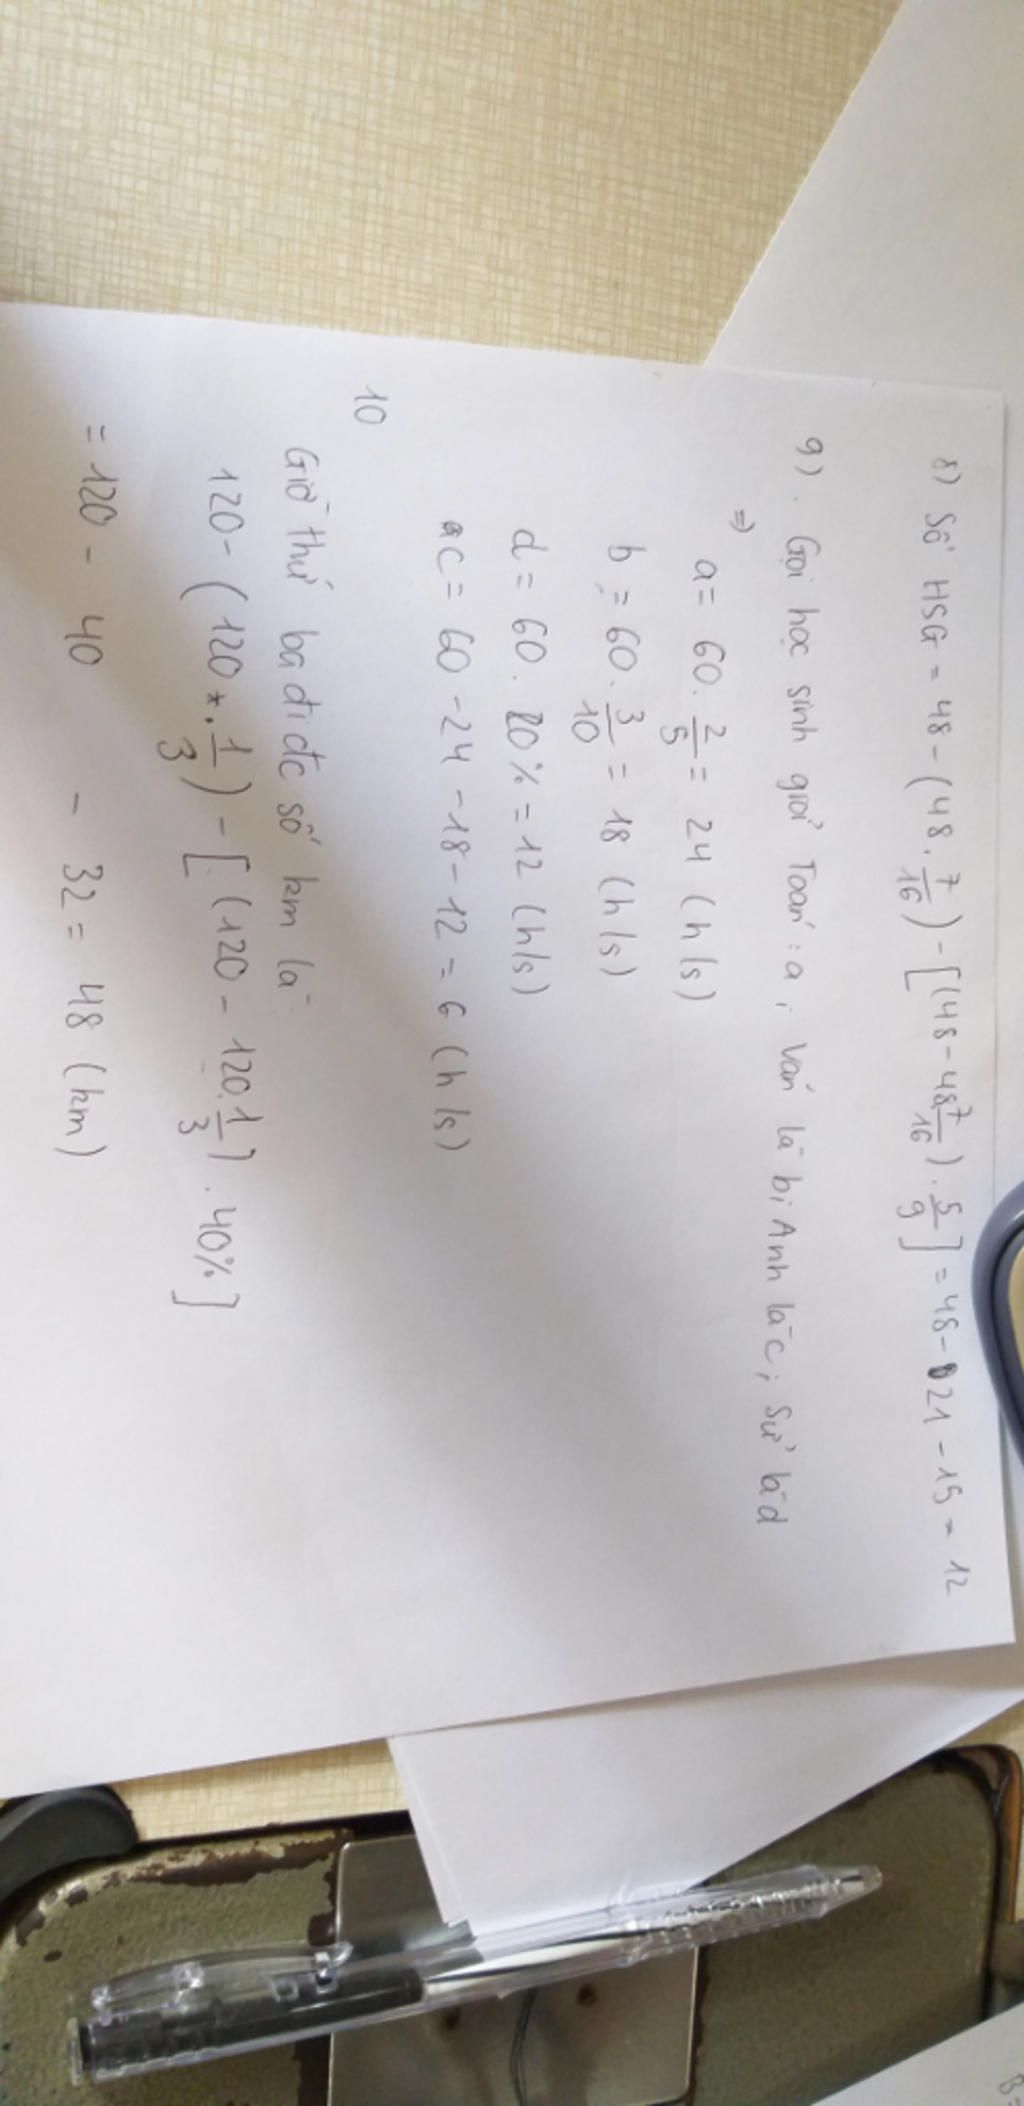 8) Số HSG = 48 - (48 . 7/16) - [(48 - 48 7/16) . 5/9] = 48 - 21 - 15 = 12
9). Gọi học sinh giỏi Toán : a ; Văn là b; Anh là c ; Sử là d
=> a = 60 . 2/5 = 24 (h/s)
b = 60 . 3/10 = 18 (h/s)
d = 60 . 20% = 12 (h/s)
c = 60 - 24 - 18 - 12 = 6 (h/s)
10
Giờ thứ ba đi đc số km là
120 - (120 . 1/3) - [(120 - 120 . 1/3) . 40%]
= 120 - 40 - 32 = 48 (km)